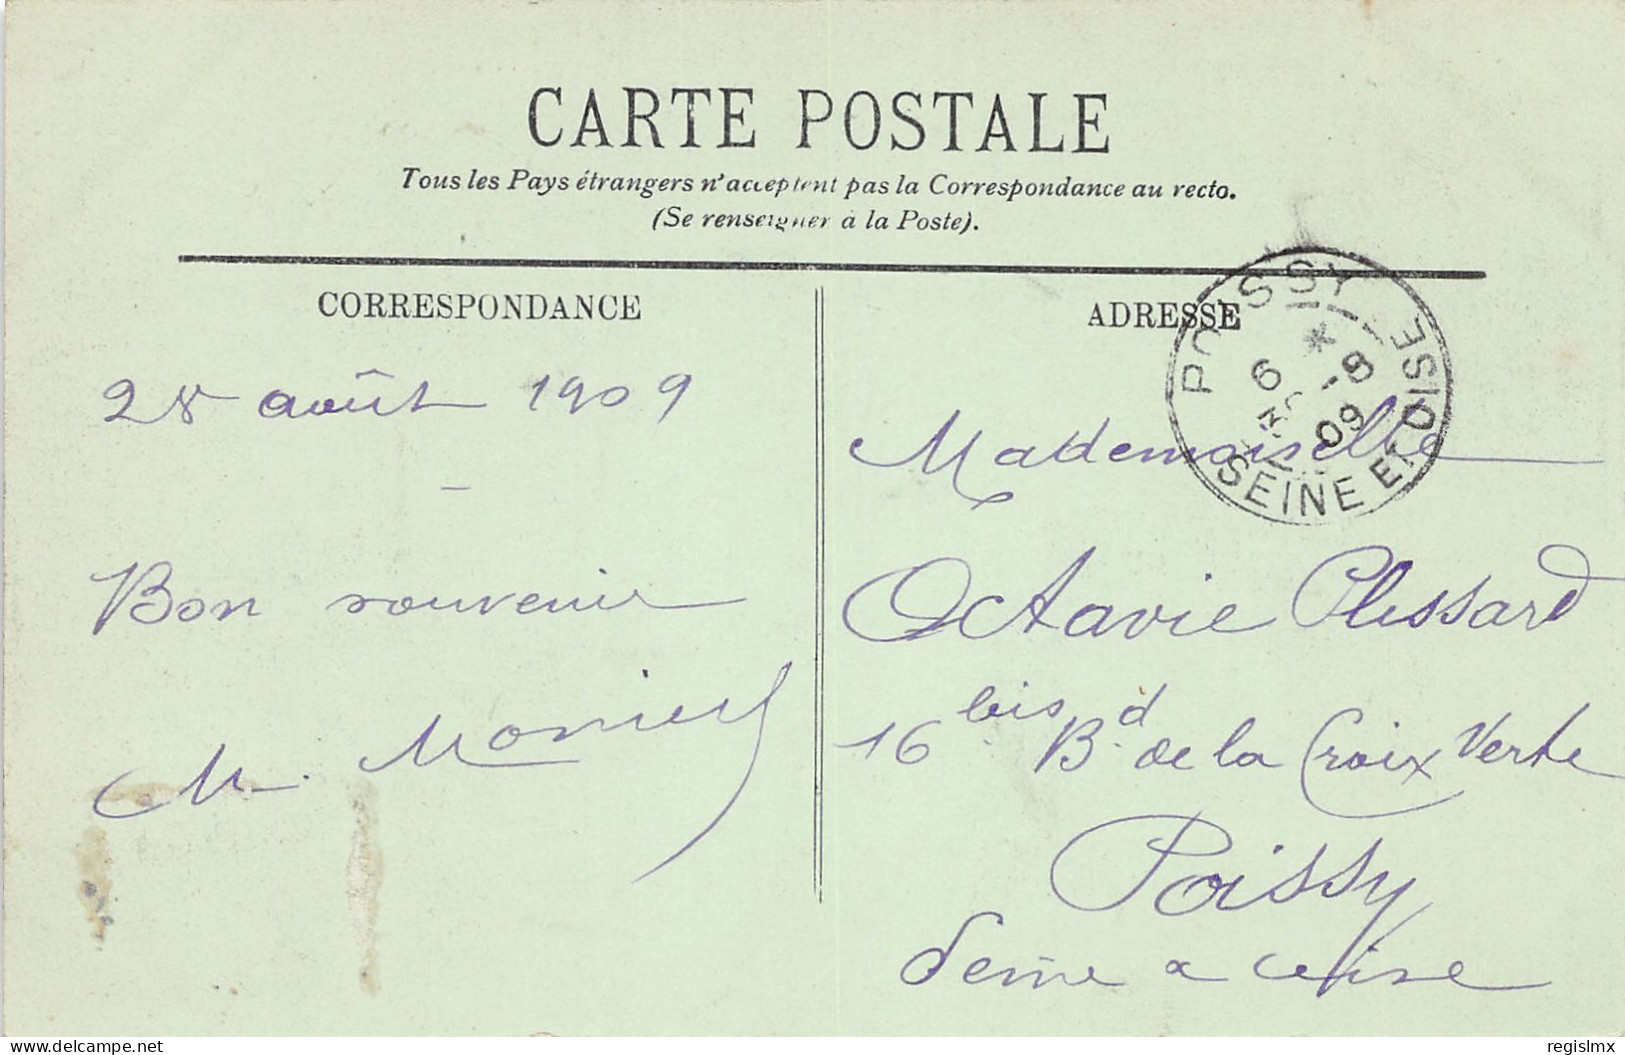 CARTE POSTALE
Tous les Pays étrangers n'acceptent pas la Correspondance au recto.
(Se renseigner à la Poste).
CORRESPONDANCE
28 août 1909
Bon souvenir
M. Moniez
ADRESSE
POISSY
6 *
30 -8
09
SEINE ET OISE
Mademoiselle
Octavie Plessard
16 bis Bd de la Croix Verte
Poissy
Seine
delcampe.net
regislmx